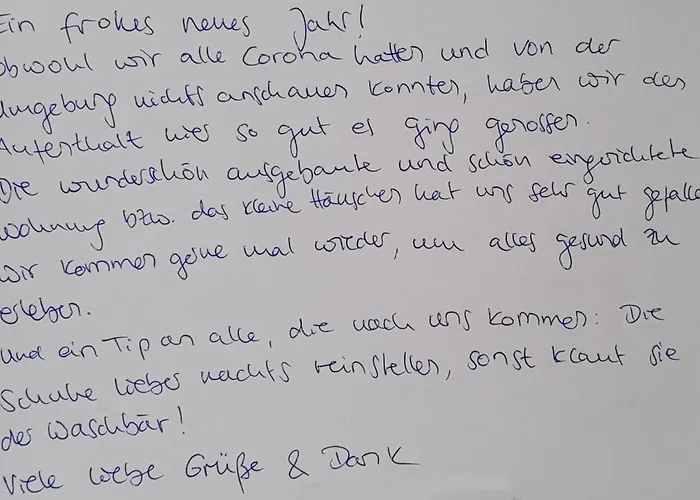 Ein frohes neues Jahr!
Obwohl wir alle Corona hatten und von der
Umgebung nichts anschauen konnten, haben wir den
Aufenthalt hier so gut es ging genossen.
Die wunderschön ausgebaute und schön eingerichtete
Wohnung bzw. das kleine Häuschen hat uns sehr gut gefallen
Wir kommen gerne mal wieder, um alles gesund zu
erleben.
Und ein Tip an alle, die nach uns kommen: Die
Schuhe lieber nachts reinstellen, sonst klaut sie
der Waschbär!
Viele liebe Grüße & Dank